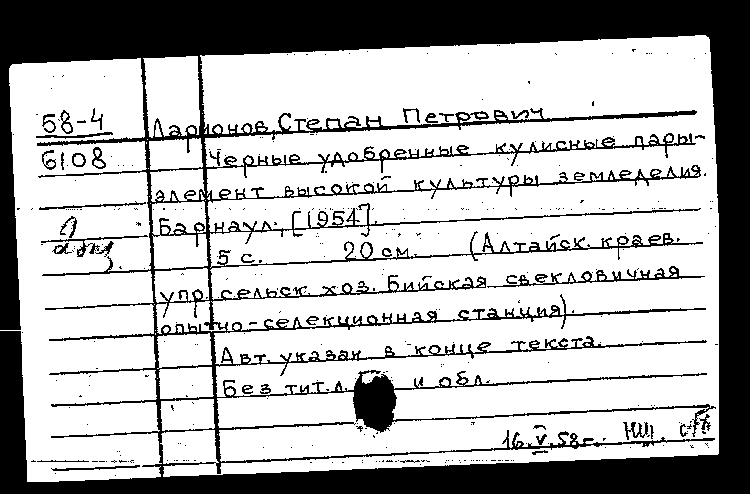 58-4
6108
Ларионов, Степан Петрович
Черные удобренные кулисные пары-
элемент высокой культуры земледелия.
Барнаул, [1954].
5 с. 20 см. (Алтайск. краев.
упр. сельск. хоз. Бийская свекловичная
опытно-селекционная станция).
Авт. указан в конце текста.
Без тит. л. и обл.
2 экз.
16.V.58г.